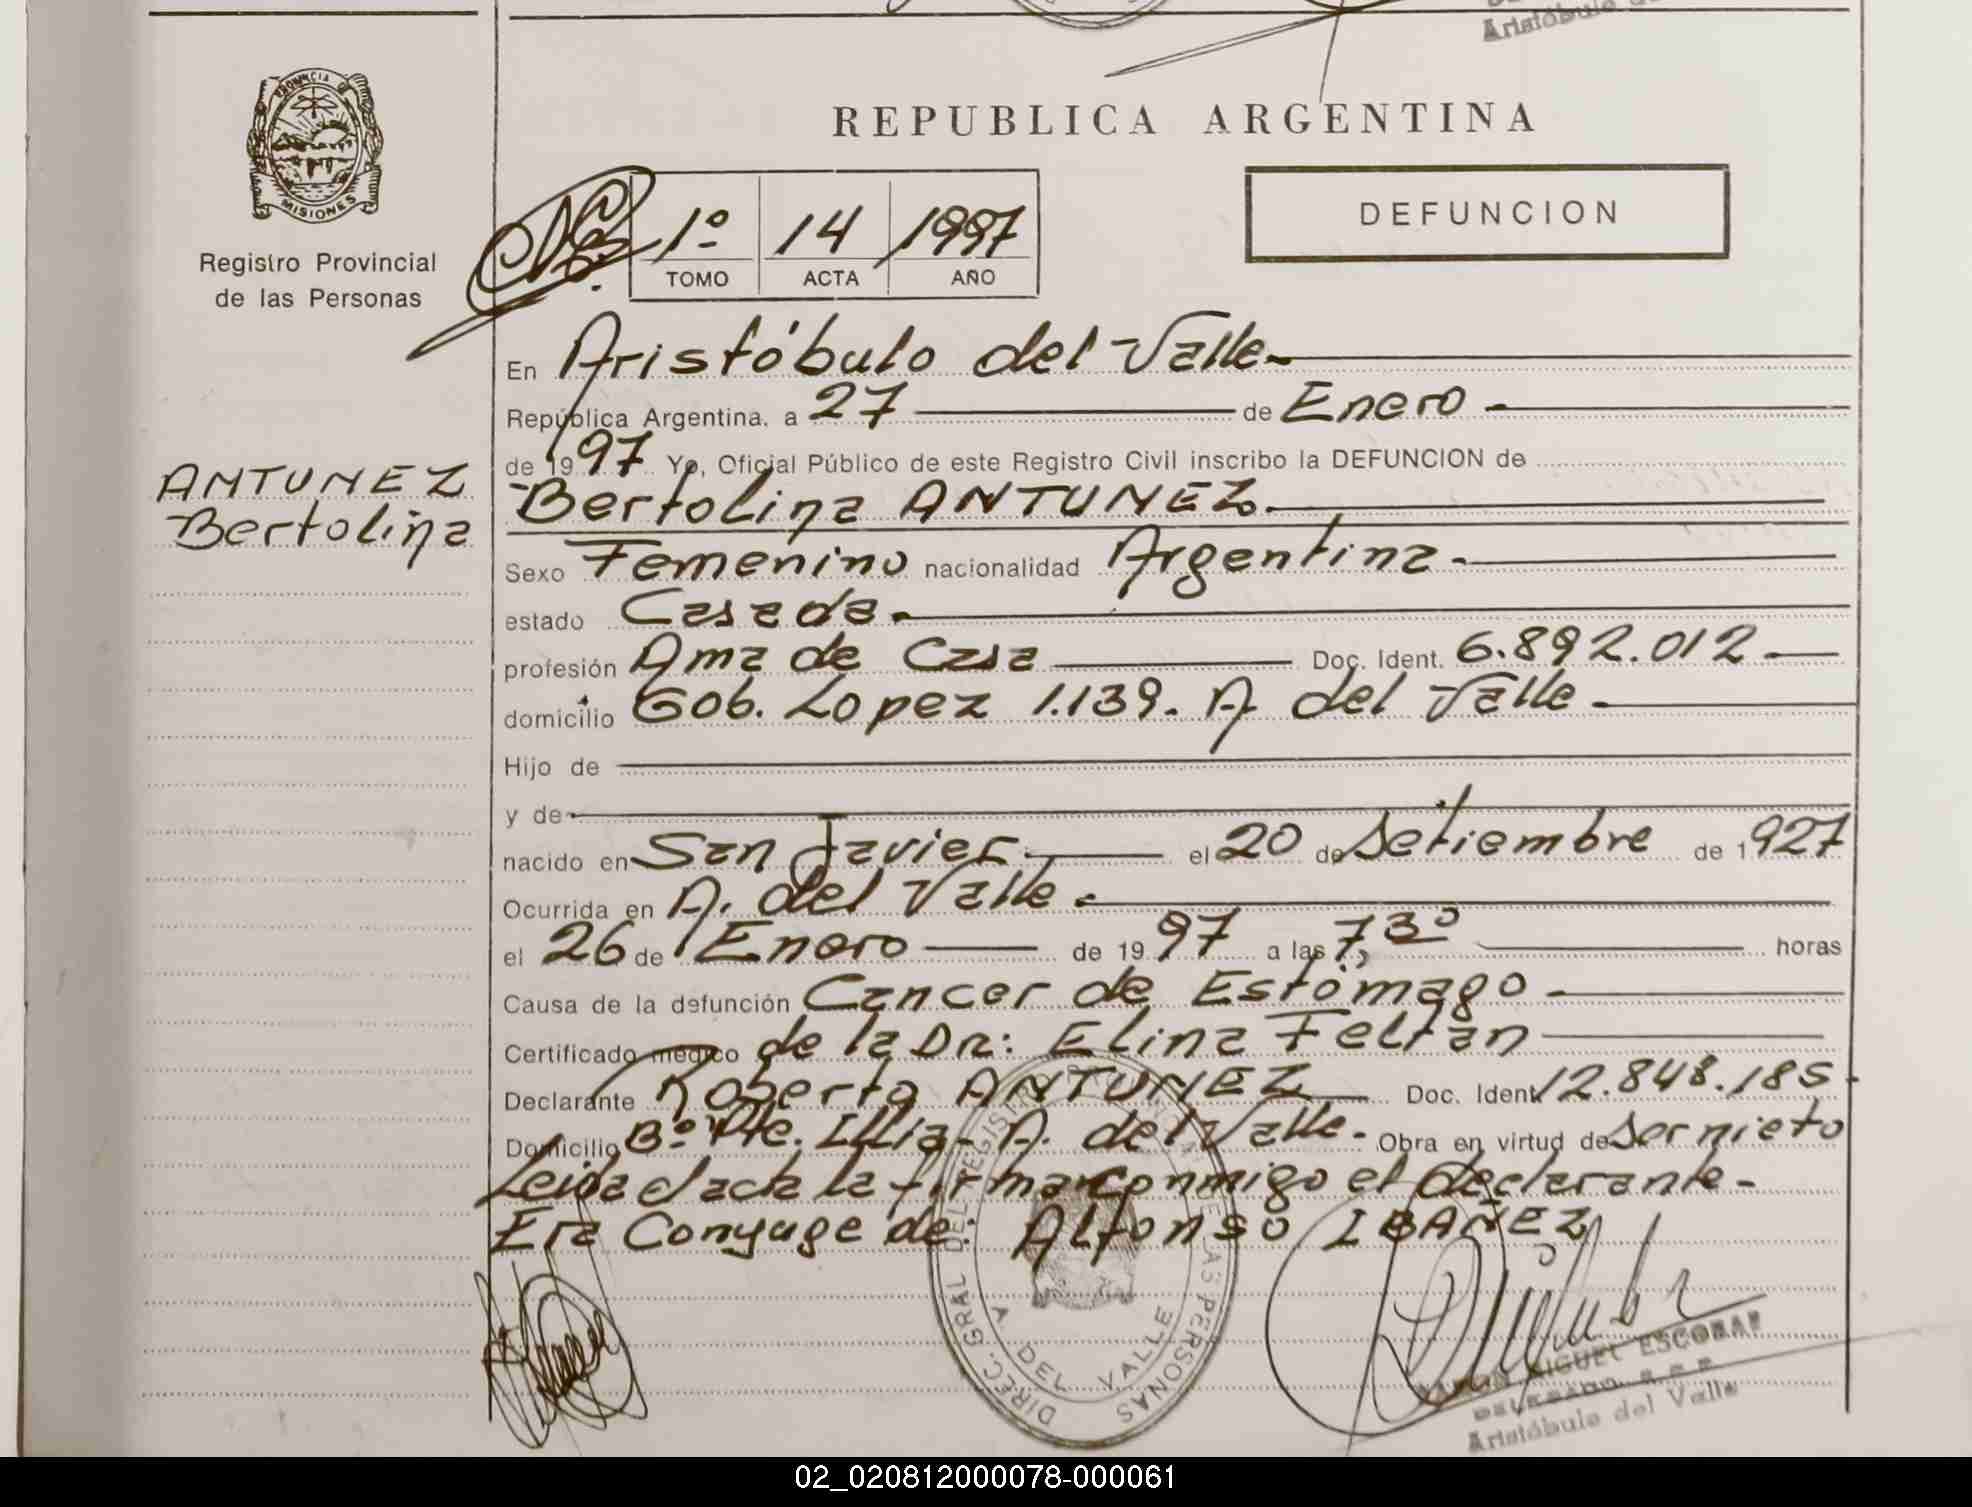 Aristóbulo
PROVINCIA DE
MISIONES
Registro Provincial
de las Personas
REPUBLICA ARGENTINA
DEFUNCION
1º 14 1997
TOMO ACTA AÑO
En Aristóbulo del Valle-
República Argentina, a 27 de Enero -
de 1997 Yo, Oficial Público de este Registro Civil inscribo la DEFUNCION de
ANTUNEZ
Bertolina
Bertolina ANTUNEZ.
Sexo Femenino nacionalidad Argentina-
estado Casada.
profesión Ama de Casa Doc. Ident. 6.892.012
domicilio Gob. Lopez 1.139. A del Valle-
Hijo de
y de
nacido en San Javier el 20 de Setiembre de 1927
Ocurrida en A. del Valle.
el 26 de Enero de 1997 a las 7,30 horas
Causa de la defunción Cancer de Estómago -
Certificado médico de la Dra: Elina Feltan
Declarante Roberto ANTUNEZ Doc. Ident. 12.848.185
Domicilio Bº Pte. Illia- A. del Valle. Obra en virtud de Ser nieto
Leida el acta la firman conmigo el declarante-
Era Conyuge de: Alfonso IBAÑEZ
DIREC. GRAL DEL REGISTRO PROVINCIAL DE LAS PERSONAS
A DEL VALLE
MIGUEL ESCOBAR
DELEGADO
Aristóbulo del Valle
02_020812000078-000061